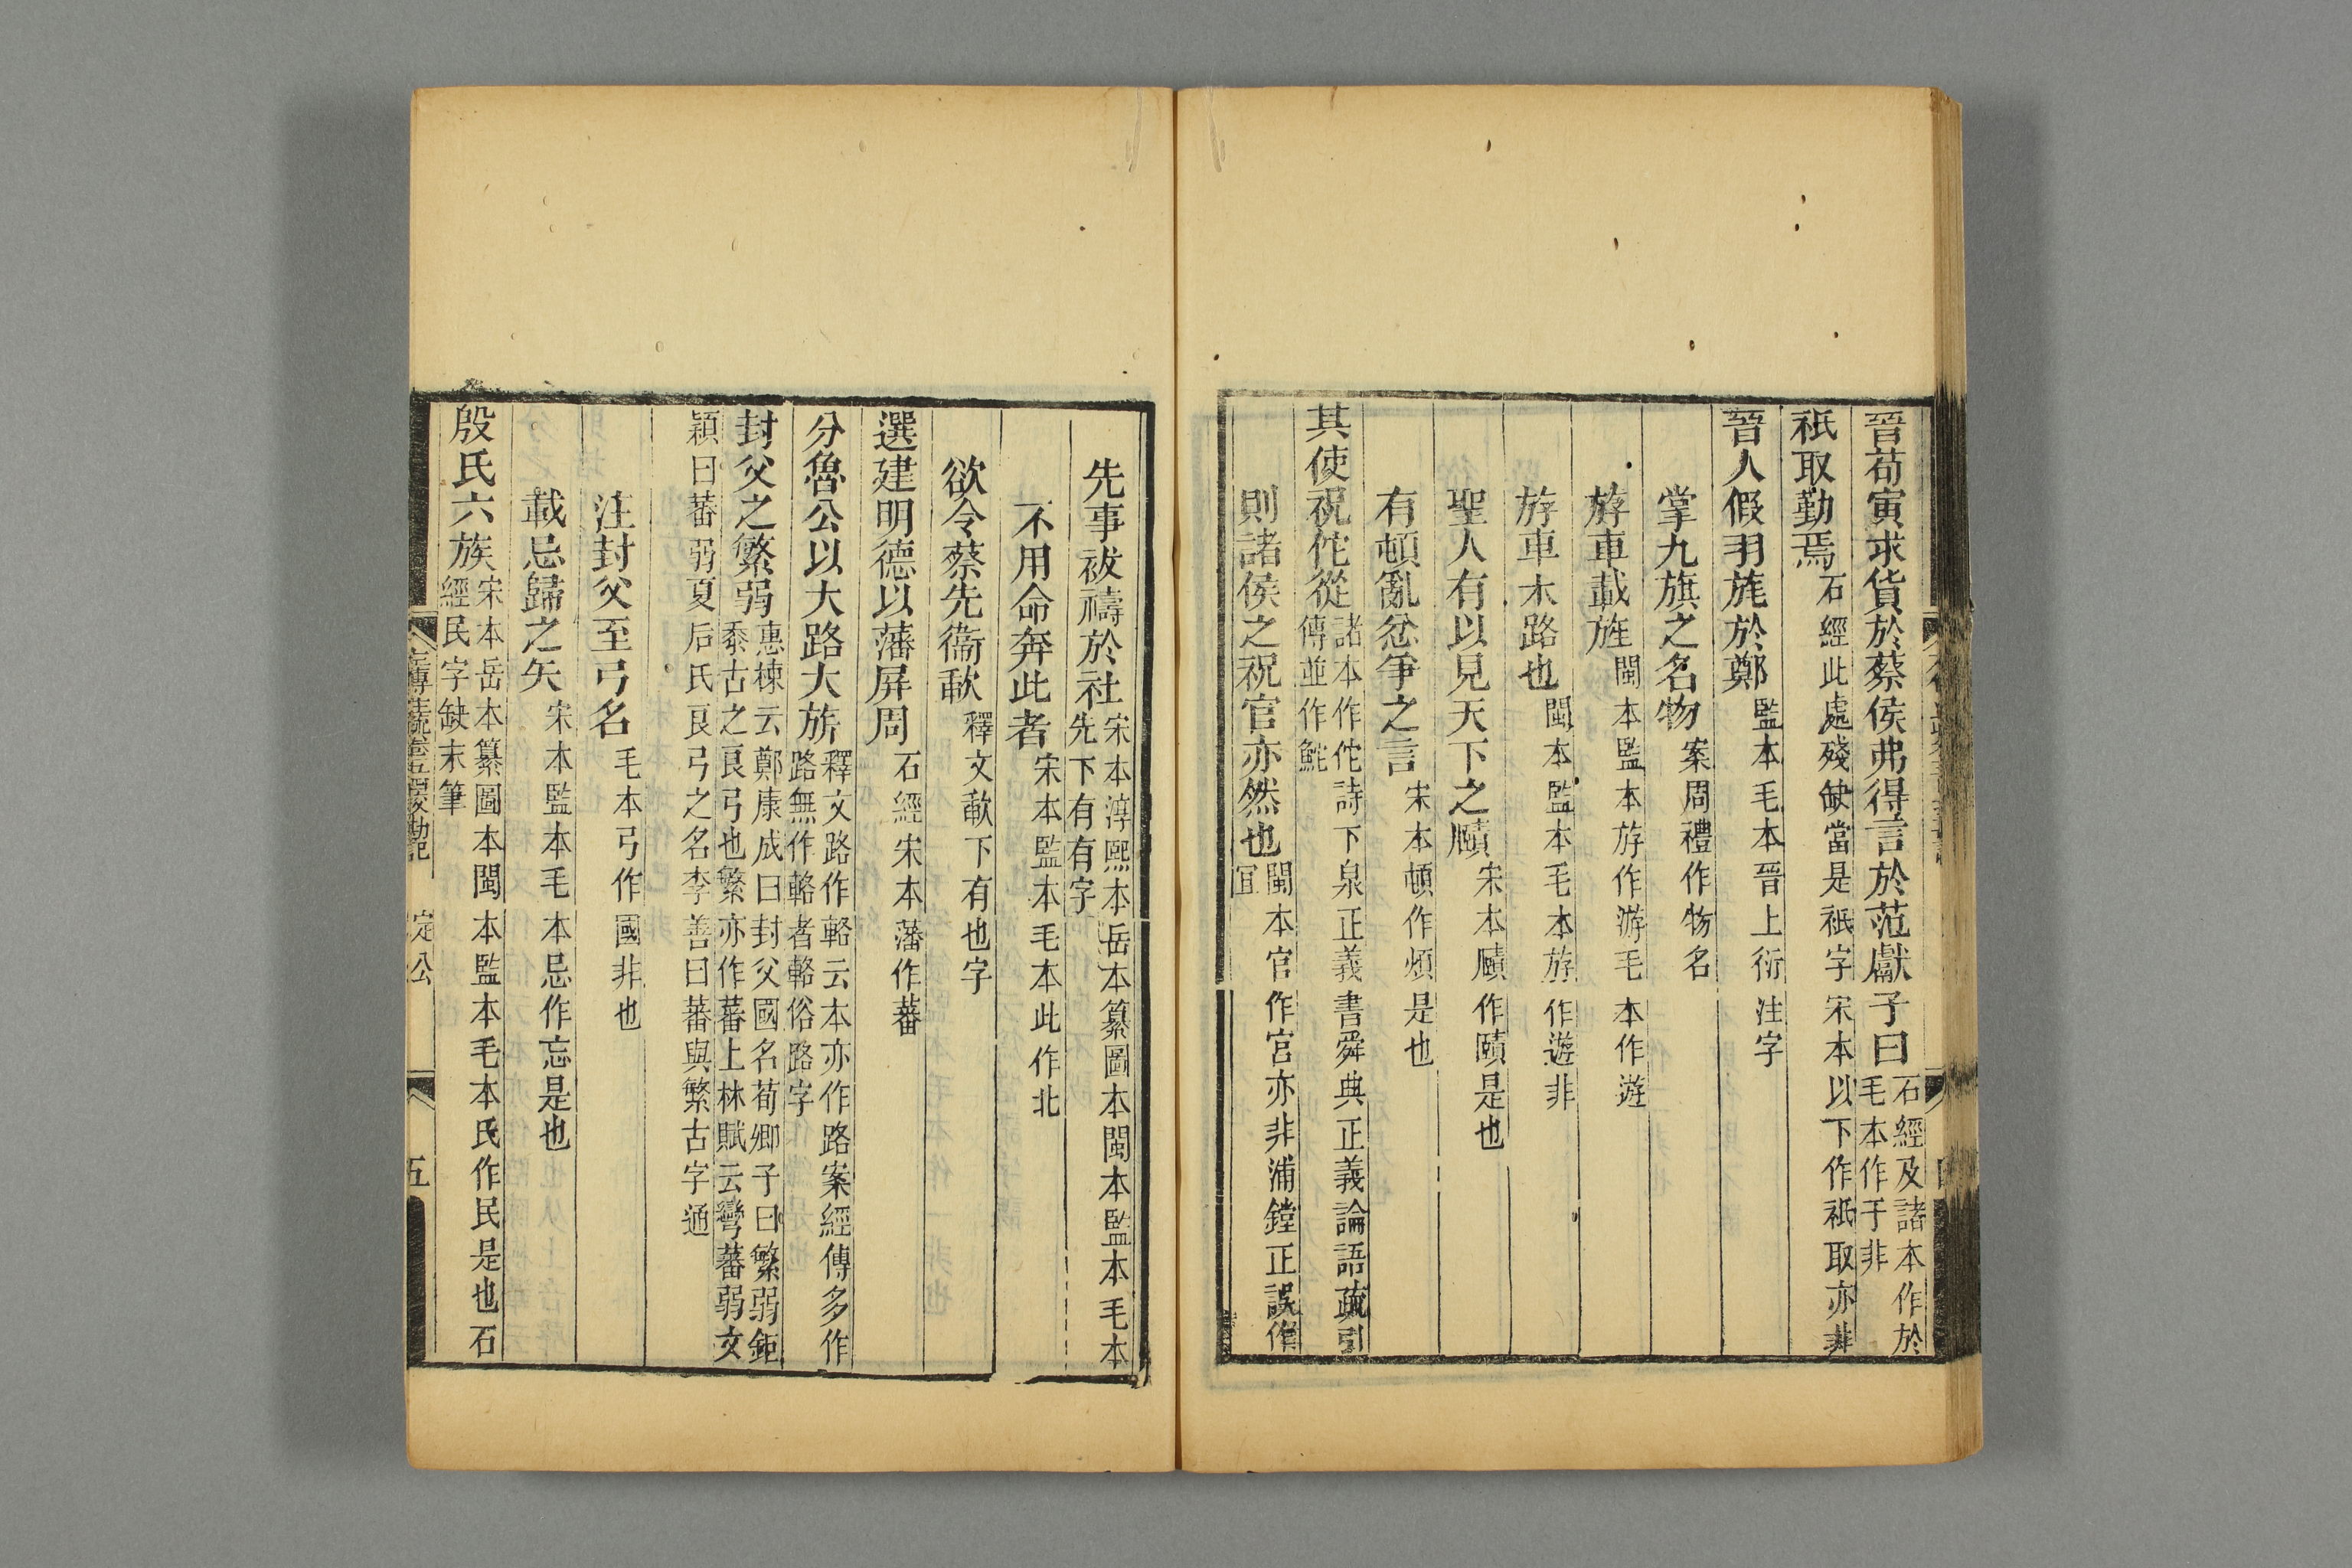 晉荀寅求貨於蔡侯弗得言於范獻子曰石經及諸本作於毛本作于非
祇取勤焉石經此處殘缺當是祇字宋本以下作祇取亦非
晉人假羽旄於鄭監本毛本晉上衍注字
掌九旗之名物案周禮作物名
斿車載旌閩本監本斿作游毛本作遊
斿車木路也閩本監本毛本斿作遊非
聖人有以見天下之賾宋本賾作頤是也
有頓亂忿爭之言宋本頓作煩是也
其使祝佗從諸本作佗詩下泉正義書舜典正義論語疏引傳並作鮀
則諸侯之祝官亦然也閩本官作宫亦非浦鏜正誤作宜
先事祓禱於社宋本淳熙本岳本纂圖本閩本監本毛本先下有有字
不用命奔此者宋本監本毛本此作北
欲令蔡先衞歃釋文歃下有也字
選建明德以藩屏周石經宋本藩作蕃
分魯公以大路大旂釋文路作輅云本亦作路案經傳多作路無作輅者輅俗路字
封父之繁弱惠棟云鄭康成曰封父國名荀卿子曰繁弱鉅黍古之良弓也繁亦作蕃上林賦云彎蕃弱文
穎曰蕃弱夏后氏良弓之名李善曰蕃與繁古字通
注封父至弓名毛本弓作國非也
載忌歸之矢宋本監本毛本忌作忘是也
殷氏六族宋本岳本纂圖本閩本監本毛本氏作民是也石經民字缺末筆
定公
五